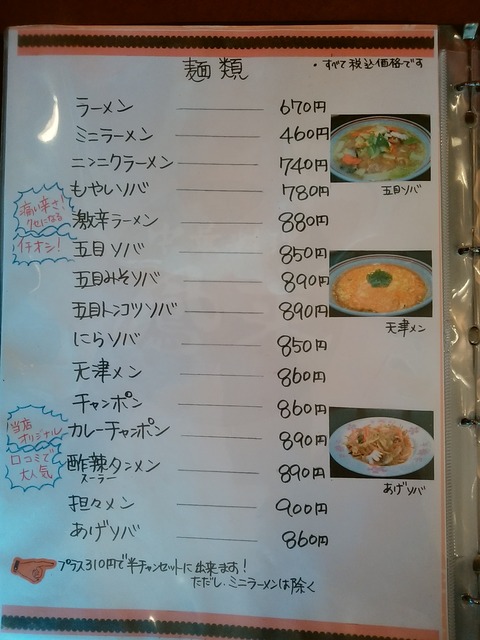 麺類
・すべて税込価格です
ラーメン 670円
ミニラーメン 460円
ニンニクラーメン 740円
もやしソバ 780円
激辛ラーメン 880円
五目ソバ 850円
五目みそソバ 890円
五目トンコツソバ 890円
にらソバ 850円
天津メン 860円
チャンポン 860円
カレーチャンポン 890円
酢辣タンメン 890円
スーラー
担々メン 900円
あげソバ 860円
痛い辛さ!
クセになる
イチオシ!
当店
オリジナル
口コミで
大人気
五目ソバ
天津メン
あげソバ
プラス310円で半チャンセットに出来ます!
ただし、ミニラーメンは除く